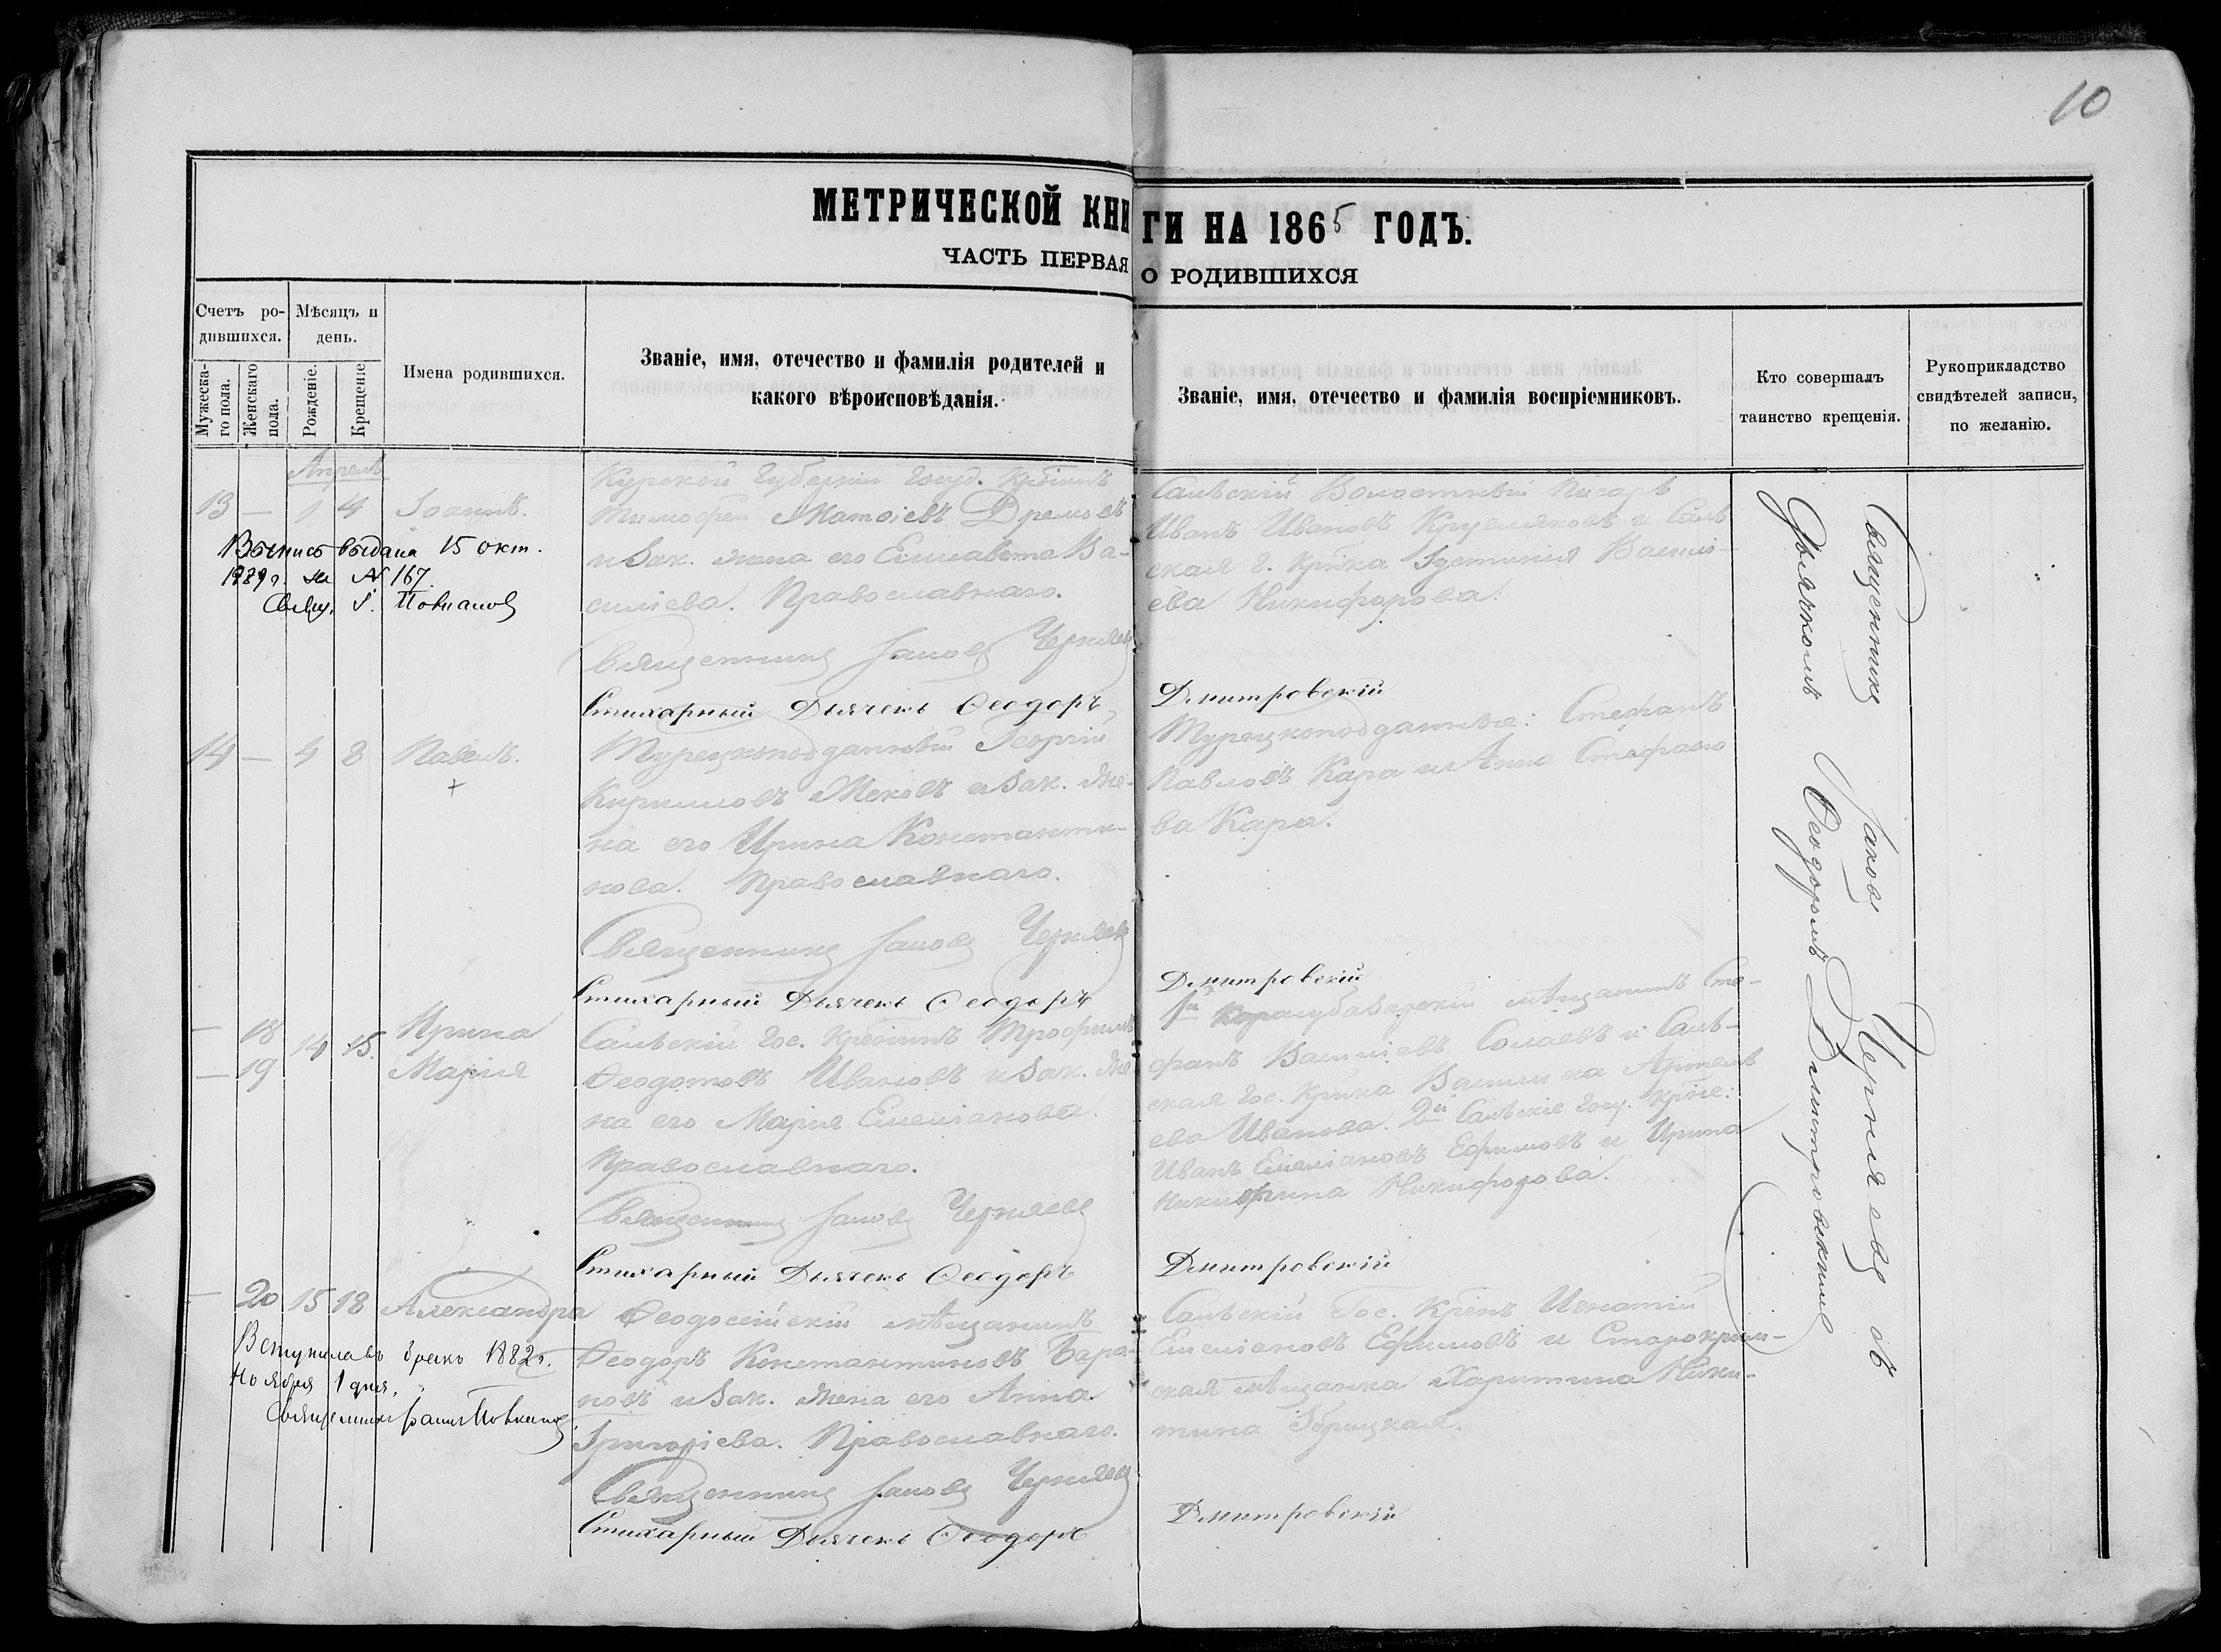 10
МЕТРИЧЕСКОЙ КНИГИ НА 1865 ГОДЪ.
ЧАСТЬ ПЕРВАЯ О РОДИВШИХСЯ
Счетъ ро-
дившихся.
Мужеска-
го пола.
Женскаго
пола.
Мѣсяцъ и
день.
Рожденіе.
Крещеніе
Имена родившихся.
Званіе, имя, отечество и фамилія родителей и
какого вѣроисповѣданія.
Званіе, имя, отечество и фамилія воспріемниковъ.
Кто совершалъ
таинство крещенія.
Рукоприкладство
свидѣтелей записи,
по желанію.
Апрель
13 — 1 4 Іоаннъ.
Выпись выдана 15 окт.
1889 г. за № 167.
Свящ. І.
Курской Губерніи Госуд. Крстнинъ
Тимофей Матѳіевъ Дремовъ
и Зак. жена его Елисавета Ва-
силіева. Православнаго.
Священникъ Іаковъ Черняевъ
Стихарный Дьячекъ Ѳеодоръ
Салъскій Волостный Писарь
Иванъ Ивановъ Кругляковъ и Салъ
ская г. Крстка Іустинія Василі-
ева Никифорова.
Дмитровскій
14 — 4 8 Павелъ.
+
Турецкоподданный Георгій
Кирилловъ Мековъ и Зак. Же-
на его Ирина Константи-
нова. Православнаго.
Священникъ Іаковъ Черняевъ
Стихарный Дьячекъ Ѳеодоръ
Турецкоподданные: Стефанъ
Павловъ Кара и Анна Стефано
ва Кара.
Дмитровскій
— 18 14 15. Ирина
— 19 Марія
Салъскій Гос. Крстнинъ Трофимъ
Ѳеодотовъ Ивановъ и Зак. Же
на его Марія Емеліанова.
Православнаго.
Священникъ Іаковъ Черняевъ
Стихарный Дьячекъ Ѳеодоръ
1й Карасубазарскій мѣщанинъ Сте-
фанъ Василіевъ Солаевъ и Салъ-
ская Гос. Крстка Василиса Артемъ
ева Иванова. 2й Салъскіе Госу. крстне:
Иванъ Емеліановъ Ефимовъ и Ирина
Никифорова.
Дмитровскій
— 20 15 18 Александра
Вступила въ бракъ 1882 г.
Ноября 1 дня.
Священникъ
Ѳеодосійскій мѣщанинъ
Ѳеодоръ Константиновъ Бара-
новъ и Зак. Жена его Анна
Григоріева. Православнаго.
Священникъ Іаковъ Черняевъ
Стихарный Дьячекъ Ѳеодоръ
Салъскій Гос. Крснъ Игнатій
Емеліановъ Ефимовъ и Старокрым-
ская мѣщанка Харитина Ники-
тина
Дмитровскій
Священникъ Іаковъ Черняевъ съ
Дьячкомъ Ѳеодоромъ Дмитровскимъ